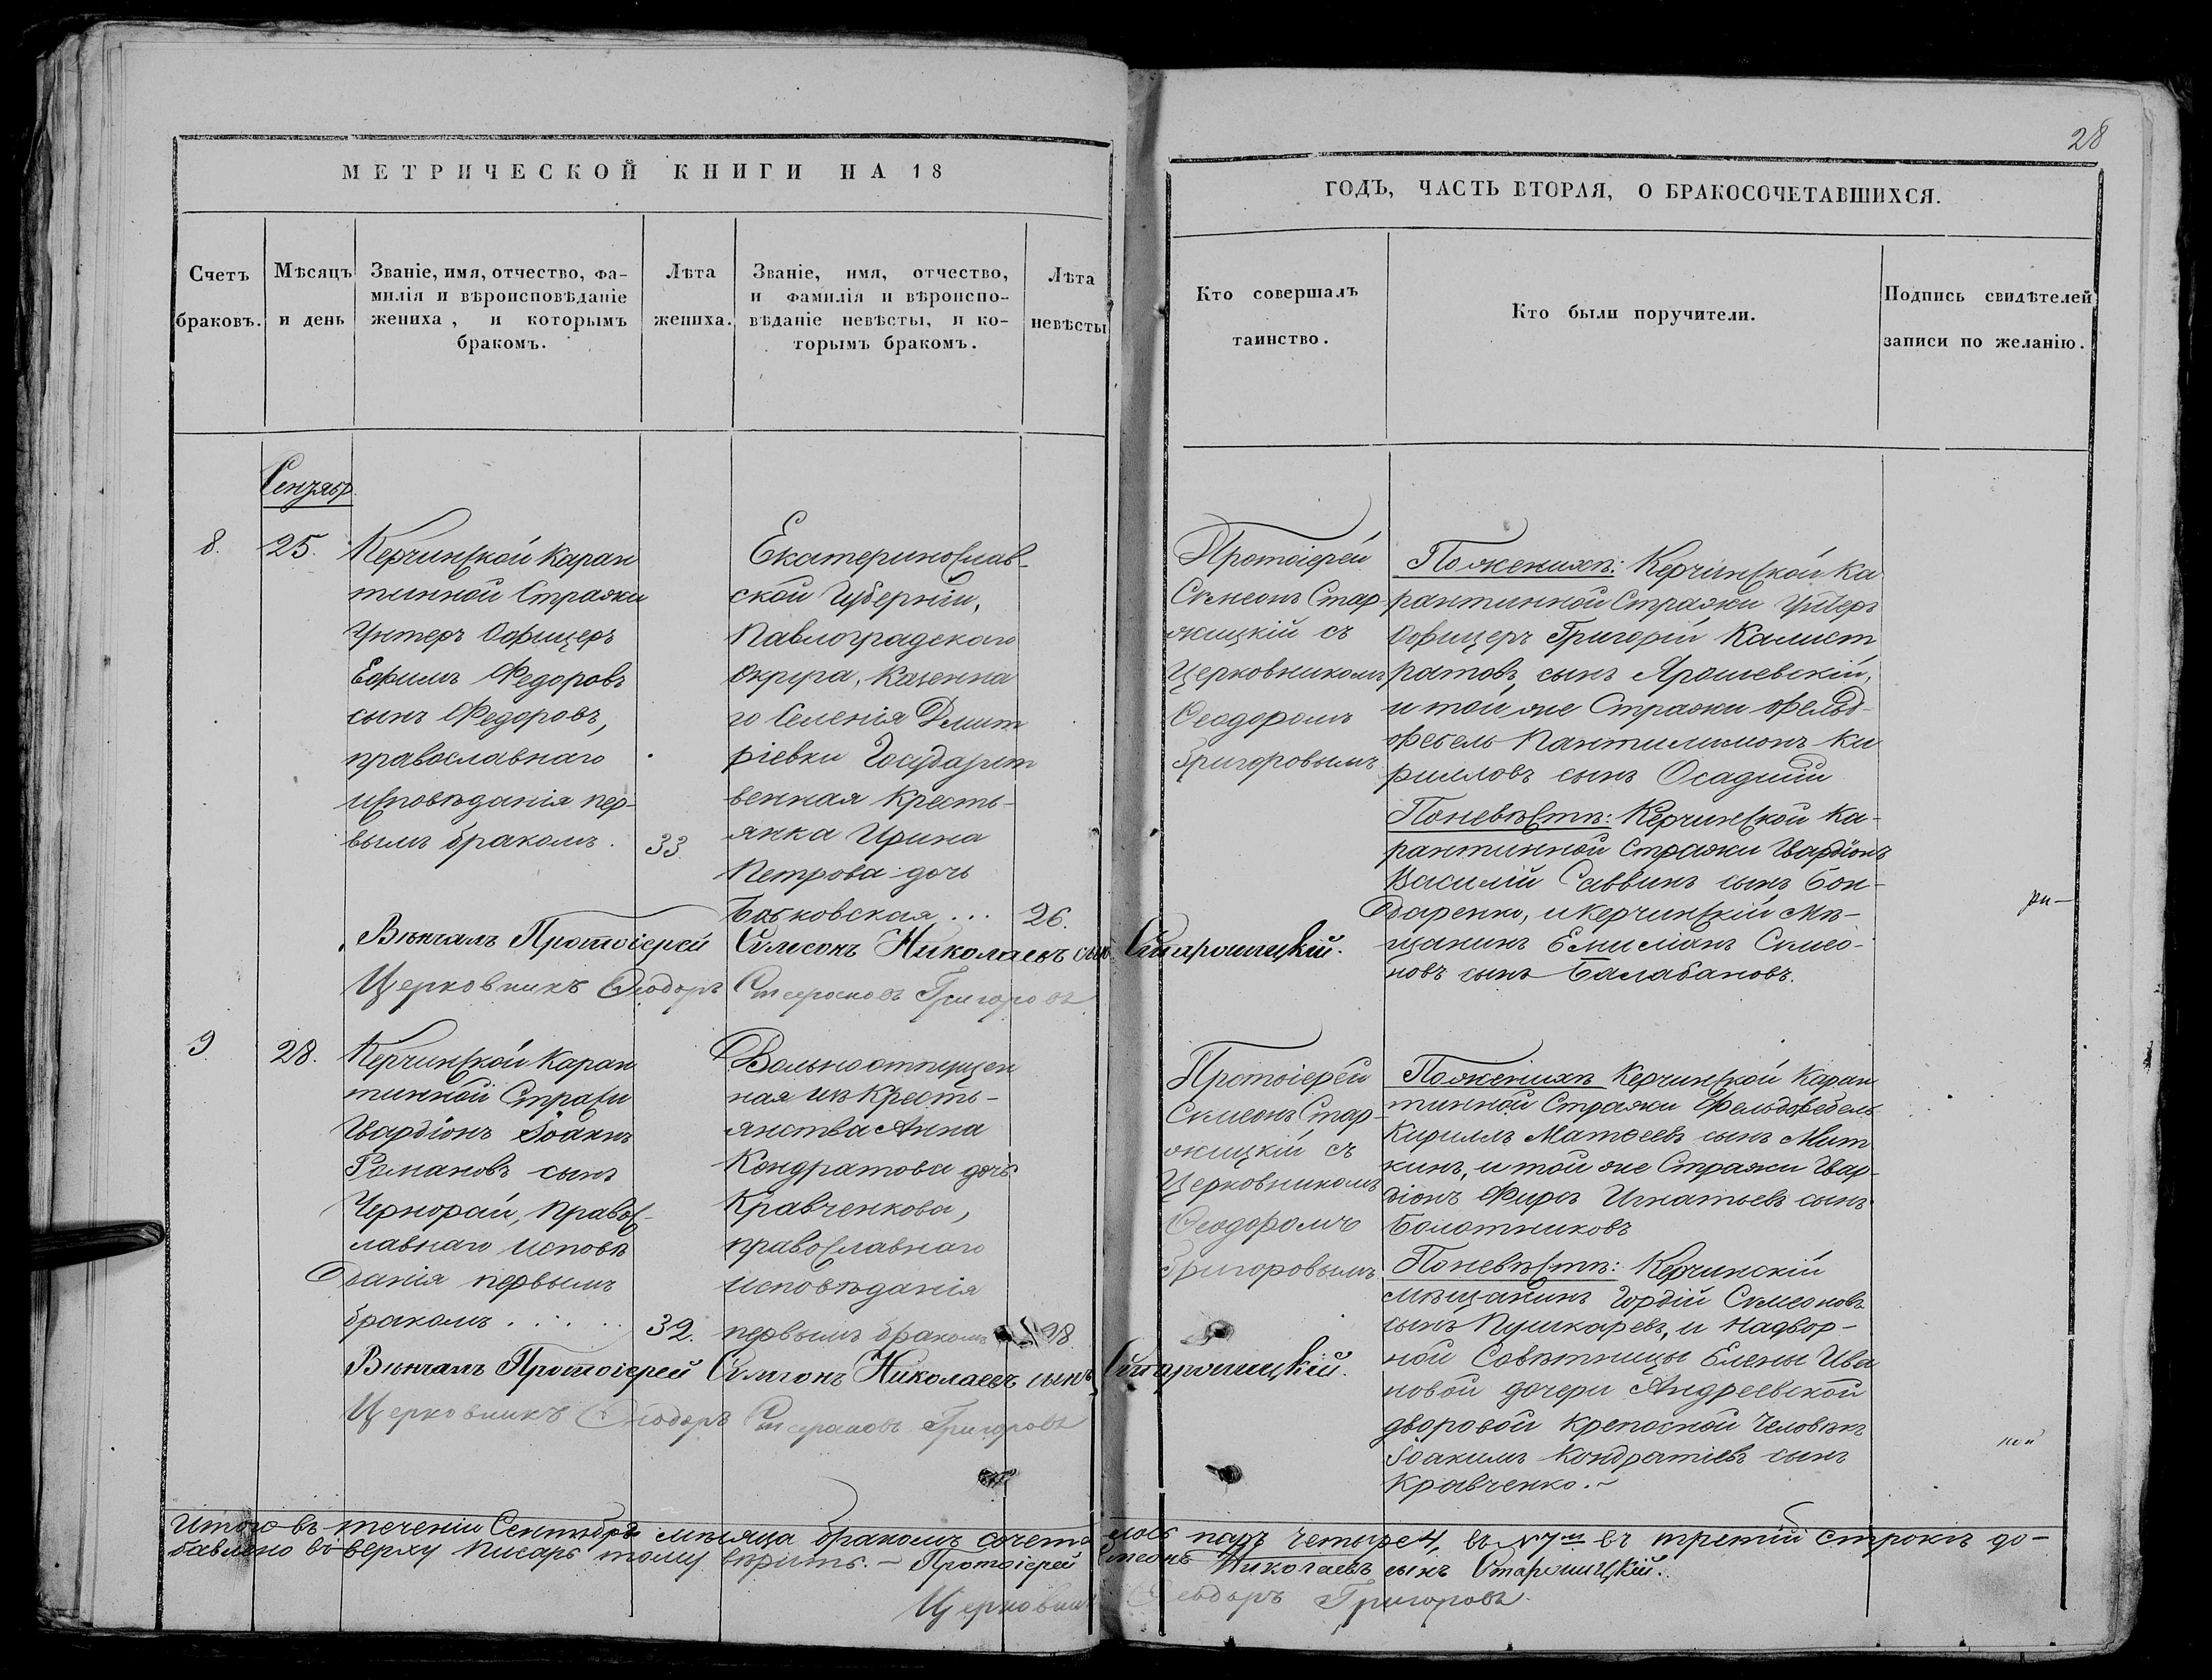 28
МЕТРИЧЕСКОЙ КНИГИ НА 18
ГОДЪ, ЧАСТЬ ВТОРАЯ, О БРАКОСОЧЕТАВШИХСЯ.
Счетъ
браковъ.
Мѣсяцъ
и день
Званіе, имя, отчество, фа-
милія и вѣроисповѣданіе
жениха, и которымъ
бракомъ.
Лѣта
жениха.
Званіе, имя, отчество,
и фамилія и вѣроиспо-
вѣданіе невѣсты, и ко-
торымъ бракомъ.
Лѣта
невѣсты
Кто совершалъ
таинство.
Кто были поручители.
Подпись свидѣтелей
записи по желанію.
8.
25.
Керчинской Каран
тинной Стражи
Унтеръ Офицеръ
Ефимъ Федоровъ
сынъ Федоровъ,
православнаго
исповѣданія пер-
вымъ бракомъ.
33.
Екатеринослав-
ской Губерніи,
Павлоградскаго
округа, Казенна
го Селенія Дмит
ріевки Государст
венная Кресть-
янка Ирина
Петрова дочь
26.
Протоіерей
Сѵмеонъ Стар
жицкій съ
Церковникомъ
Ѳеодоромъ
Григоровымъ
Поженихѣ: Керчинской Ка
рантинной Стражи Унтеръ
Офицеръ Григорій Калист
ратовъ сынъ Ярошевскій,
и той же Стражи Фельд-
фебель Пантилимонъ Ки
рилловъ сынъ Осадчій
Поневѣстѣ: Керчинской Ка-
рантинной Стражи Гвардіонъ
Василій Саввинъ сынъ Бон-
даренко, и Керчинскій Мѣ-
щанинъ Емиліанъ Сѵмео-
новъ сынъ Балабановъ.
Вѣнчалъ Протоіерей Сѵмеонъ Николаевъ сынъ
Церковникъ Ѳеодоръ Григоровъ
9
28.
Керчинской Каран
тинной Стражи
Гвардіонъ Іоаннъ
Романовъ сынъ
Чернорай, правос-
лавнаго исповѣ
данія первымъ
бракомъ . . . . .
32.
Вольноотпущен
ная изъ Кресть-
янства Анна
Кондратова дочь
Кравченкова,
православнаго
исповѣданія
первымъ бракомъ
28
Протоіерей
Сѵмеонъ Стар-
жицкій съ
Церковникомъ
Ѳеодоромъ
Григоровымъ
Поженихѣ Керчинской Каран
тинной Стражи Фельдфебель
Кириллъ Матѳеевъ сынъ Мит
кинъ, и той же Стражи Гвар-
діонъ Фирсъ Игнатьевъ сынъ
Болотниковъ
Поневѣстѣ: Керчинскій
мѣщанинъ Гордій Сѵмеоновъ
сынъ Пушкаревъ, и Надвор-
ной Совѣтницы Елены Ива
новой дочери Андреевской
дворовой крепосной человѣкъ
Іоакимъ Кондратіевъ сынъ
Кравченко.
Вѣнчалъ Протоіерей Сѵмеонъ Николаевъ сынъ
Церковникъ Ѳеодоръ Григоровъ
Итого въ теченіи Сентября мѣсяца бракомъ сочета лось паръ четыре 4, въ №7м въ третій строкѣ до-
бавлено въ верху Писарь тому вѣрить. - Протоіерей Сѵмеонъ Николаевъ сынъ
Церковникъ Ѳеодоръ Григоровъ.